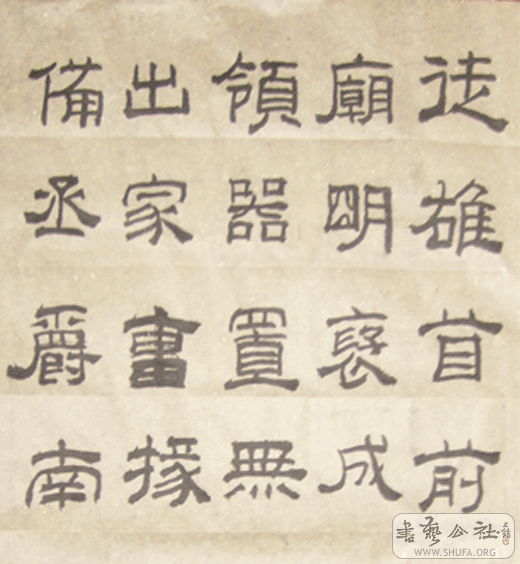 徒雄首前
廟明褒成
領器置無
出家書掾
備丞爵南
書藝公社
WWW.SHUFA.ORG